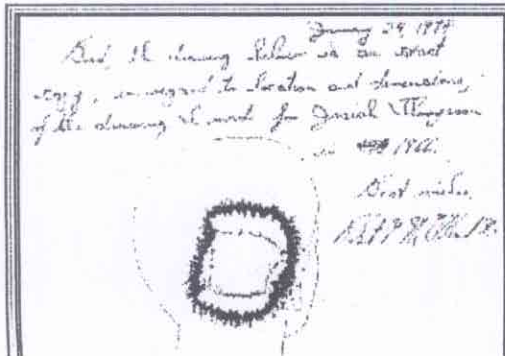 January 29, 1979
Brad, the drawing below is an exact
copy, in regard to location and dimensions,
of the drawing I made for Josiah Thompson
in 1966.
Best wishes,